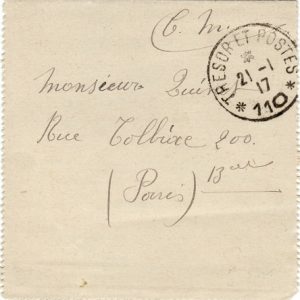 C. M.
TRESOR ET POSTES
21 - 1
17
* 110 *
Monsieur Quin
Rue Tolbiac 200.
13eme
(Paris)